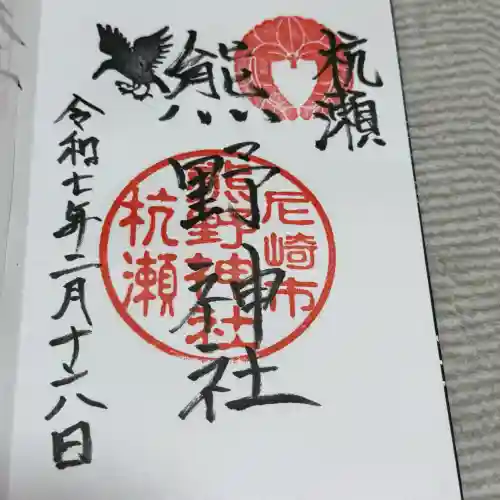 杭瀬
熊野神社
令和七年二月十八日
尼崎市
熊野神社
杭瀬